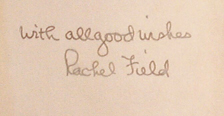 with all good wishes
Rachel Field